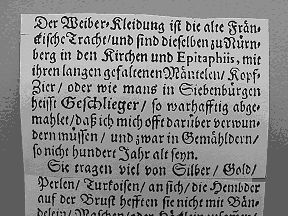 Der Weiber-Kleidung ist die alte Frän-
ckische Tracht/ und sind dieselben zu Nürn-
berg in den Kirchen und Epitaphiis, mit
ihren langen gefaltenen Mäntelen/ Kopf-
Zier/ oder wie mans in Siebenbürgen
heisst Geschlieger/ so warhafftig abge-
mahlet/ daß ich mich offt darüber verwun-
dern müssen/ und zwar in Gemähldern/
so nicht hundert Jahr alt seyn.
Sie tragen viel von Silber/ Gold/
Perlen/ Turkoisen/ an sich/ die Hembder
auf der Brust hefften sie nicht mit Bän-
delein/ Maschen/ oder